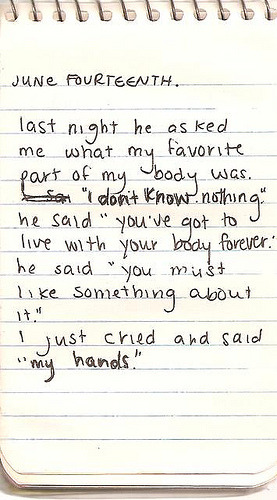 JUNE FOURTEENTH.
last night he asked
me what my favorite
part of my body was.
"i don't know. nothing."
he said "you've got to
live with your body forever."
he said "you must
like something about
it."
i just cried and said
"my hands."